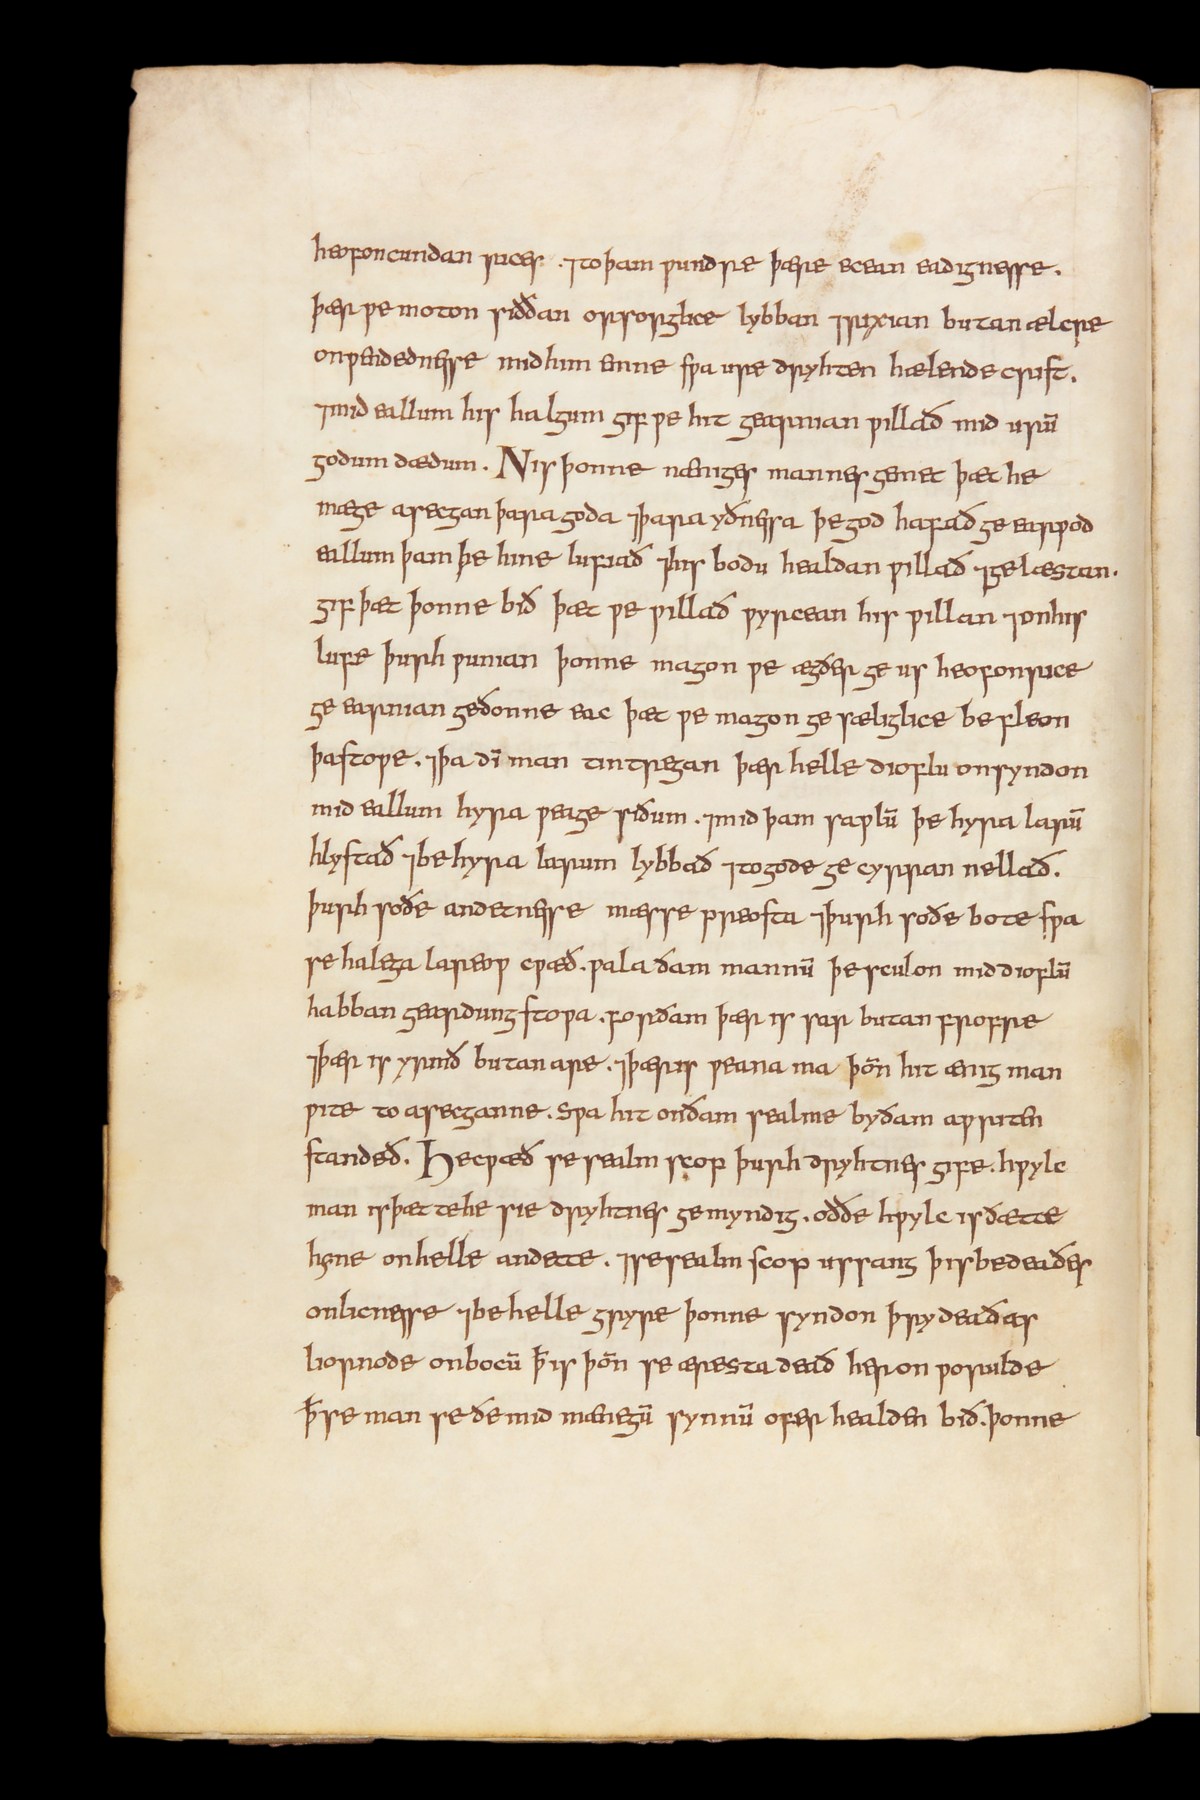 heofoncundan rices. ⁊to þam ƿundre þære ecean eadignesse.
þær ƿe moton siððan orsorglice lybban ⁊rixian butan ælcre
onƿendednesse mid him anne sƿa ure dryhten hælende crist.
⁊mid eallum his halgum gif ƿe hit gearnian ƿillað mid urū
godum dædum. Nis þonne næniges mannes gemet þæt he
mæge asecgan þara goda ⁊þara yðnessa þe god hafað ge earƿod
eallum þam þe hine lufiað ⁊his bodu healdan ƿillað ⁊gelæstan.
gif þæt þonne bið þæt ƿe ƿillað ƿyrcean his ƿillan ⁊on his
lufe þurh ƿunian þonne magon ƿe ægðer ge us heofonrice
ge earnian geðonne eac þæt ƿe magon ge sæliglice be fleon
þa stoƿe. ⁊þa dī man tintregan þær helle dioflu on syndon
mid eallum hyra ƿeage siðum. ⁊mid þam saƿlū þe hyra larū
hlystað ⁊be hyra larum lybbað ⁊to gode ge cyrran nellað.
þurh soðe andetnesse mæsse preosta ⁊þurh soðe bote sƿa
se halega lareoƿ cƿæð. ƿala ðam mannū þe sculon mid dioflū
habban geardung stoƿa. forðam þær is sar butan frofre
⁊þær is yrmð butan are. ⁊þær is ƿeana ma þoñ hit ænig man
ƿite to asecganne. Sƿa hit on ðam sealme by ðam aƿriten
standeð. He cƿæð se sealm scop þurh dryhtnes gife. hƿylc
man is þæt te he sie dryhtnes gemyndig. oððe hƿylc is ðætte
hyne on helle andette. ⁊se sealm scop us sang þis be deaðes
onlicnesse ⁊be helle gryre þonne syndon þry deaðas
liornode on bocū ꝥ is þoñ se æresta deað her on worulde
ꝥ se man se ðe mid mænegū synnū ofer healden bið. þonne